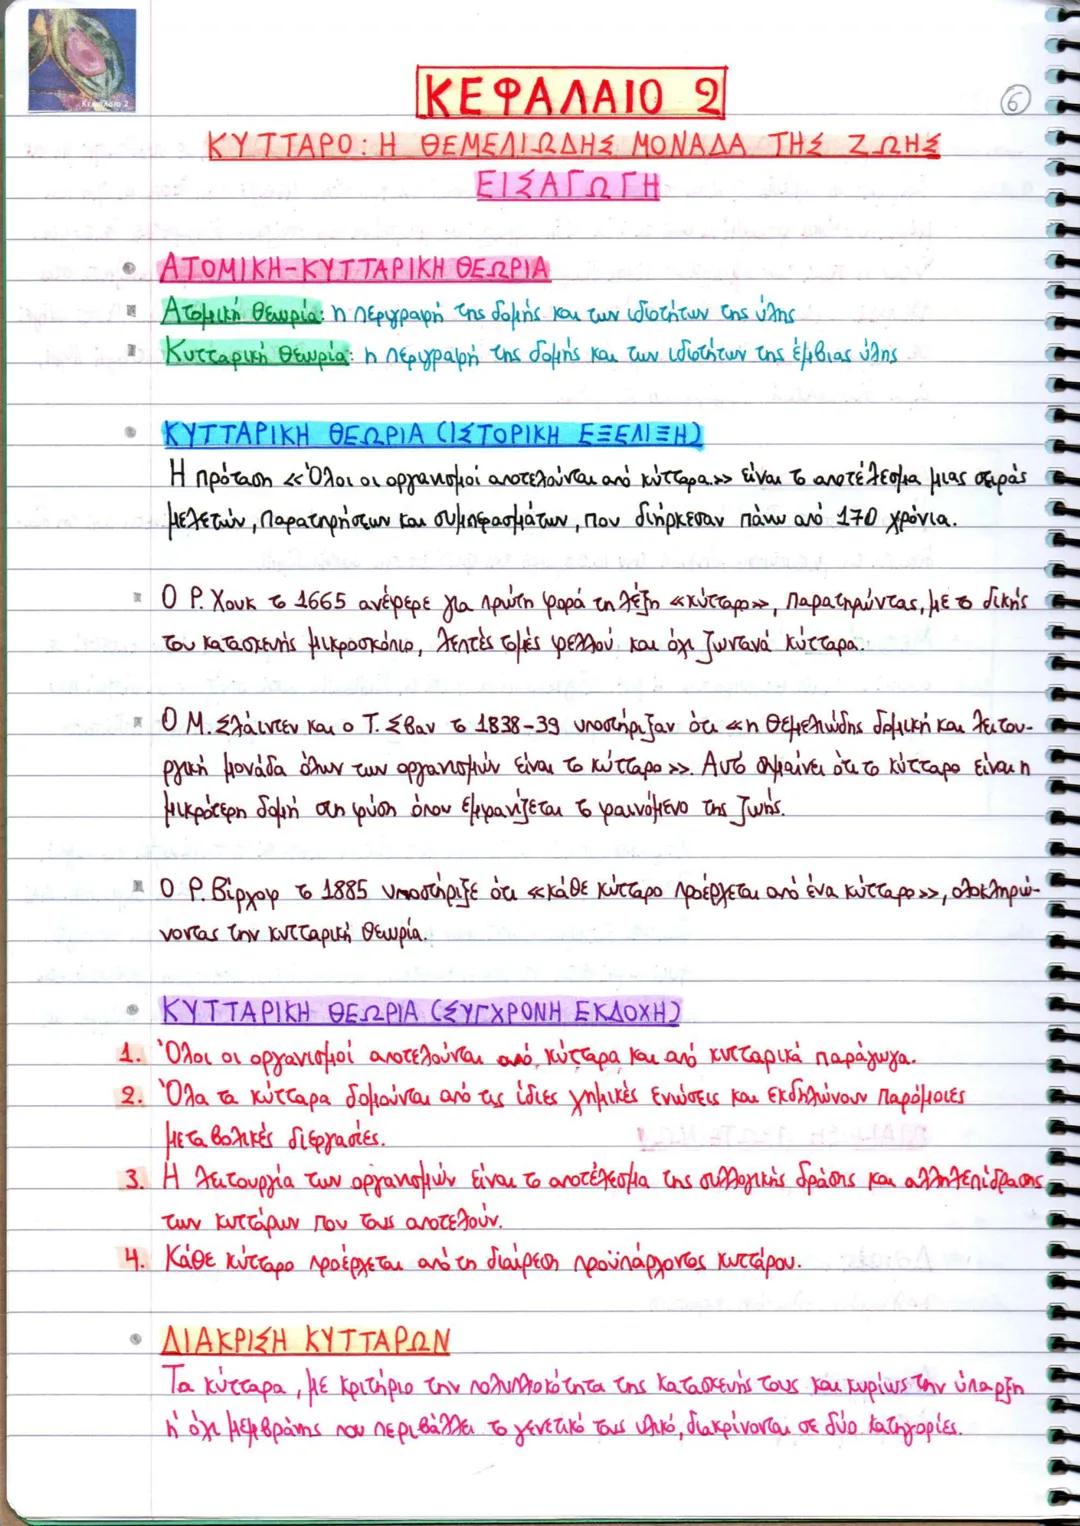 Κεφάλαιο 2
ΚΕΦΑΛΑΙΟ 2
6
ΚΥΤΤΑΡΟ: Η ΘΕΜΕΛΙΩΔΗΣ ΜΟΝΑΔΑ ΤΗΣ ΖΩΗΣ
ΕΙΣΑΓΩΓΗ
ΑΤΟΜΙΚΗ-ΚΥΤΤΑΡΙΚΗ ΘΕΩΡΙΑ
Ατομική Θεωρία: η περιγραφή της δομής και των ιδιοτήτων της ύλης
Κυτταρική Θεωρία: η περιγραφή της δομής και των ιδιοτήτων της έμβιας ύλης
ΚΥΤΤΑΡΙΚΗ ΘΕΩΡΙΑ (ΙΣΤΟΡΙΚΗ ΕΞΕΛΙΞΗ)
Η πρόταση «Όλοι οι οργανισμοί αποτελούνται από κύτταρα.» είναι το αποτέλεσμα μιας σειράς
μελετών, παρατηρήσεων και συμπερασμάτων, που διήρκεσαν πάνω από 170 χρόνια.
Ο Ρ. Χουκ το 1665 ανέφερε για πρώτη φορά τη λέξη «κύτταρο», παρατηρώντας, με το δικής
του κατασκευής μικροσκόπιο, λεπτές τομές φελλού και όχι ζωντανά κύτταρα.
Ο Μ. Σλάιντεν και ο Τ. Σβαν το 1838-39 υποστήριξαν ότι «η θεμελιώδης δομική και λειτου-
ργική μονάδα όλων των οργανισμών είναι το κύτταρο». Αυτό σημαίνει ότι το κύτταρο είναι η
μικρότερη δομή στη φύση όπου εμφανίζεται το φαινόμενο της ζωής.
Ο Ρ. Βίρχοφ το 1885 υποστήριξε ότι «κάθε κύτταρο προέρχεται από ένα κύτταρο», ολοκληρώ-
νοντας την κυτταρική θεωρία.
ΚΥΤΤΑΡΙΚΗ ΘΕΩΡΙΑ (ΣΥΓΧΡΟΝΗ ΕΚΔΟΧΗ)
1. Όλοι οι οργανισμοί αποτελούνται από κύτταρα και από κυτταρικά παράγωγα.
2. Όλα τα κύτταρα δομούνται από τις ίδιες χημικές ενώσεις και εκδηλώνουν παρόμοιες
μεταβολικές διεργασίες.
3. Η λειτουργία των οργανισμών είναι το αποτέλεσμα της συλλογικής δράσης και αλληλεπίδρασης
των κυττάρων που τους αποτελούν.
4. Κάθε κύτταρο προέρχεται από τη διαίρεση προϋπάρχοντος κυττάρου.
ΔΙΑΚΡΙΣΗ ΚΥΤΤΑΡΩΝ
Τα κύτταρα, με κριτήριο την πολυπλοκότητα της κατασκευής τους και κυρίως την ύπαρξη
ή όχι μεμβράνης που περιβάλλει το γενετικό τους υλικό, διακρίνονται σε δύο κατηγορίες.